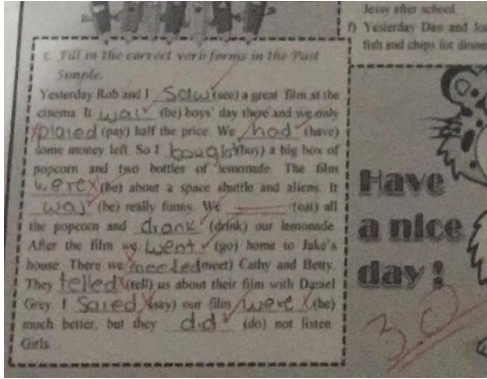 Jessy after school.
f) Yesterday Dan and
fish and chips for dinner
5. Fill in the correct verb forms in the Past
Simple.
Yesterday Rob and I saw (see) a great film at the
cinema. It was (be) boys' day there and we only
plaied (pay) half the price. We had (have)
some money left. So I bought (buy) a big box of
popcorn and two bottles of lemonade. The film
were (be) about a space shuttle and aliens. It
was (be) really funny. We ______ (eat) all
the popcorn and drank (drink) our lemonade.
After the film we went (go) home to Jake's
house. There we meeted (meet) Cathy and Betty.
They telled (tell) us about their film with Daniel
Grey. I saied (say) our film were (be)
much better, but they did (do) not listen.
Girls
Have
a nice
day!